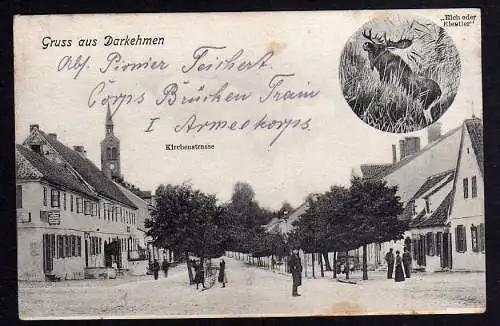 Gruss aus Darkehmen
„Elch oder
Elentier“
Abs. Pionier Teichert
Corps Brücken Train
I Armeekorps
Kirchenstrasse